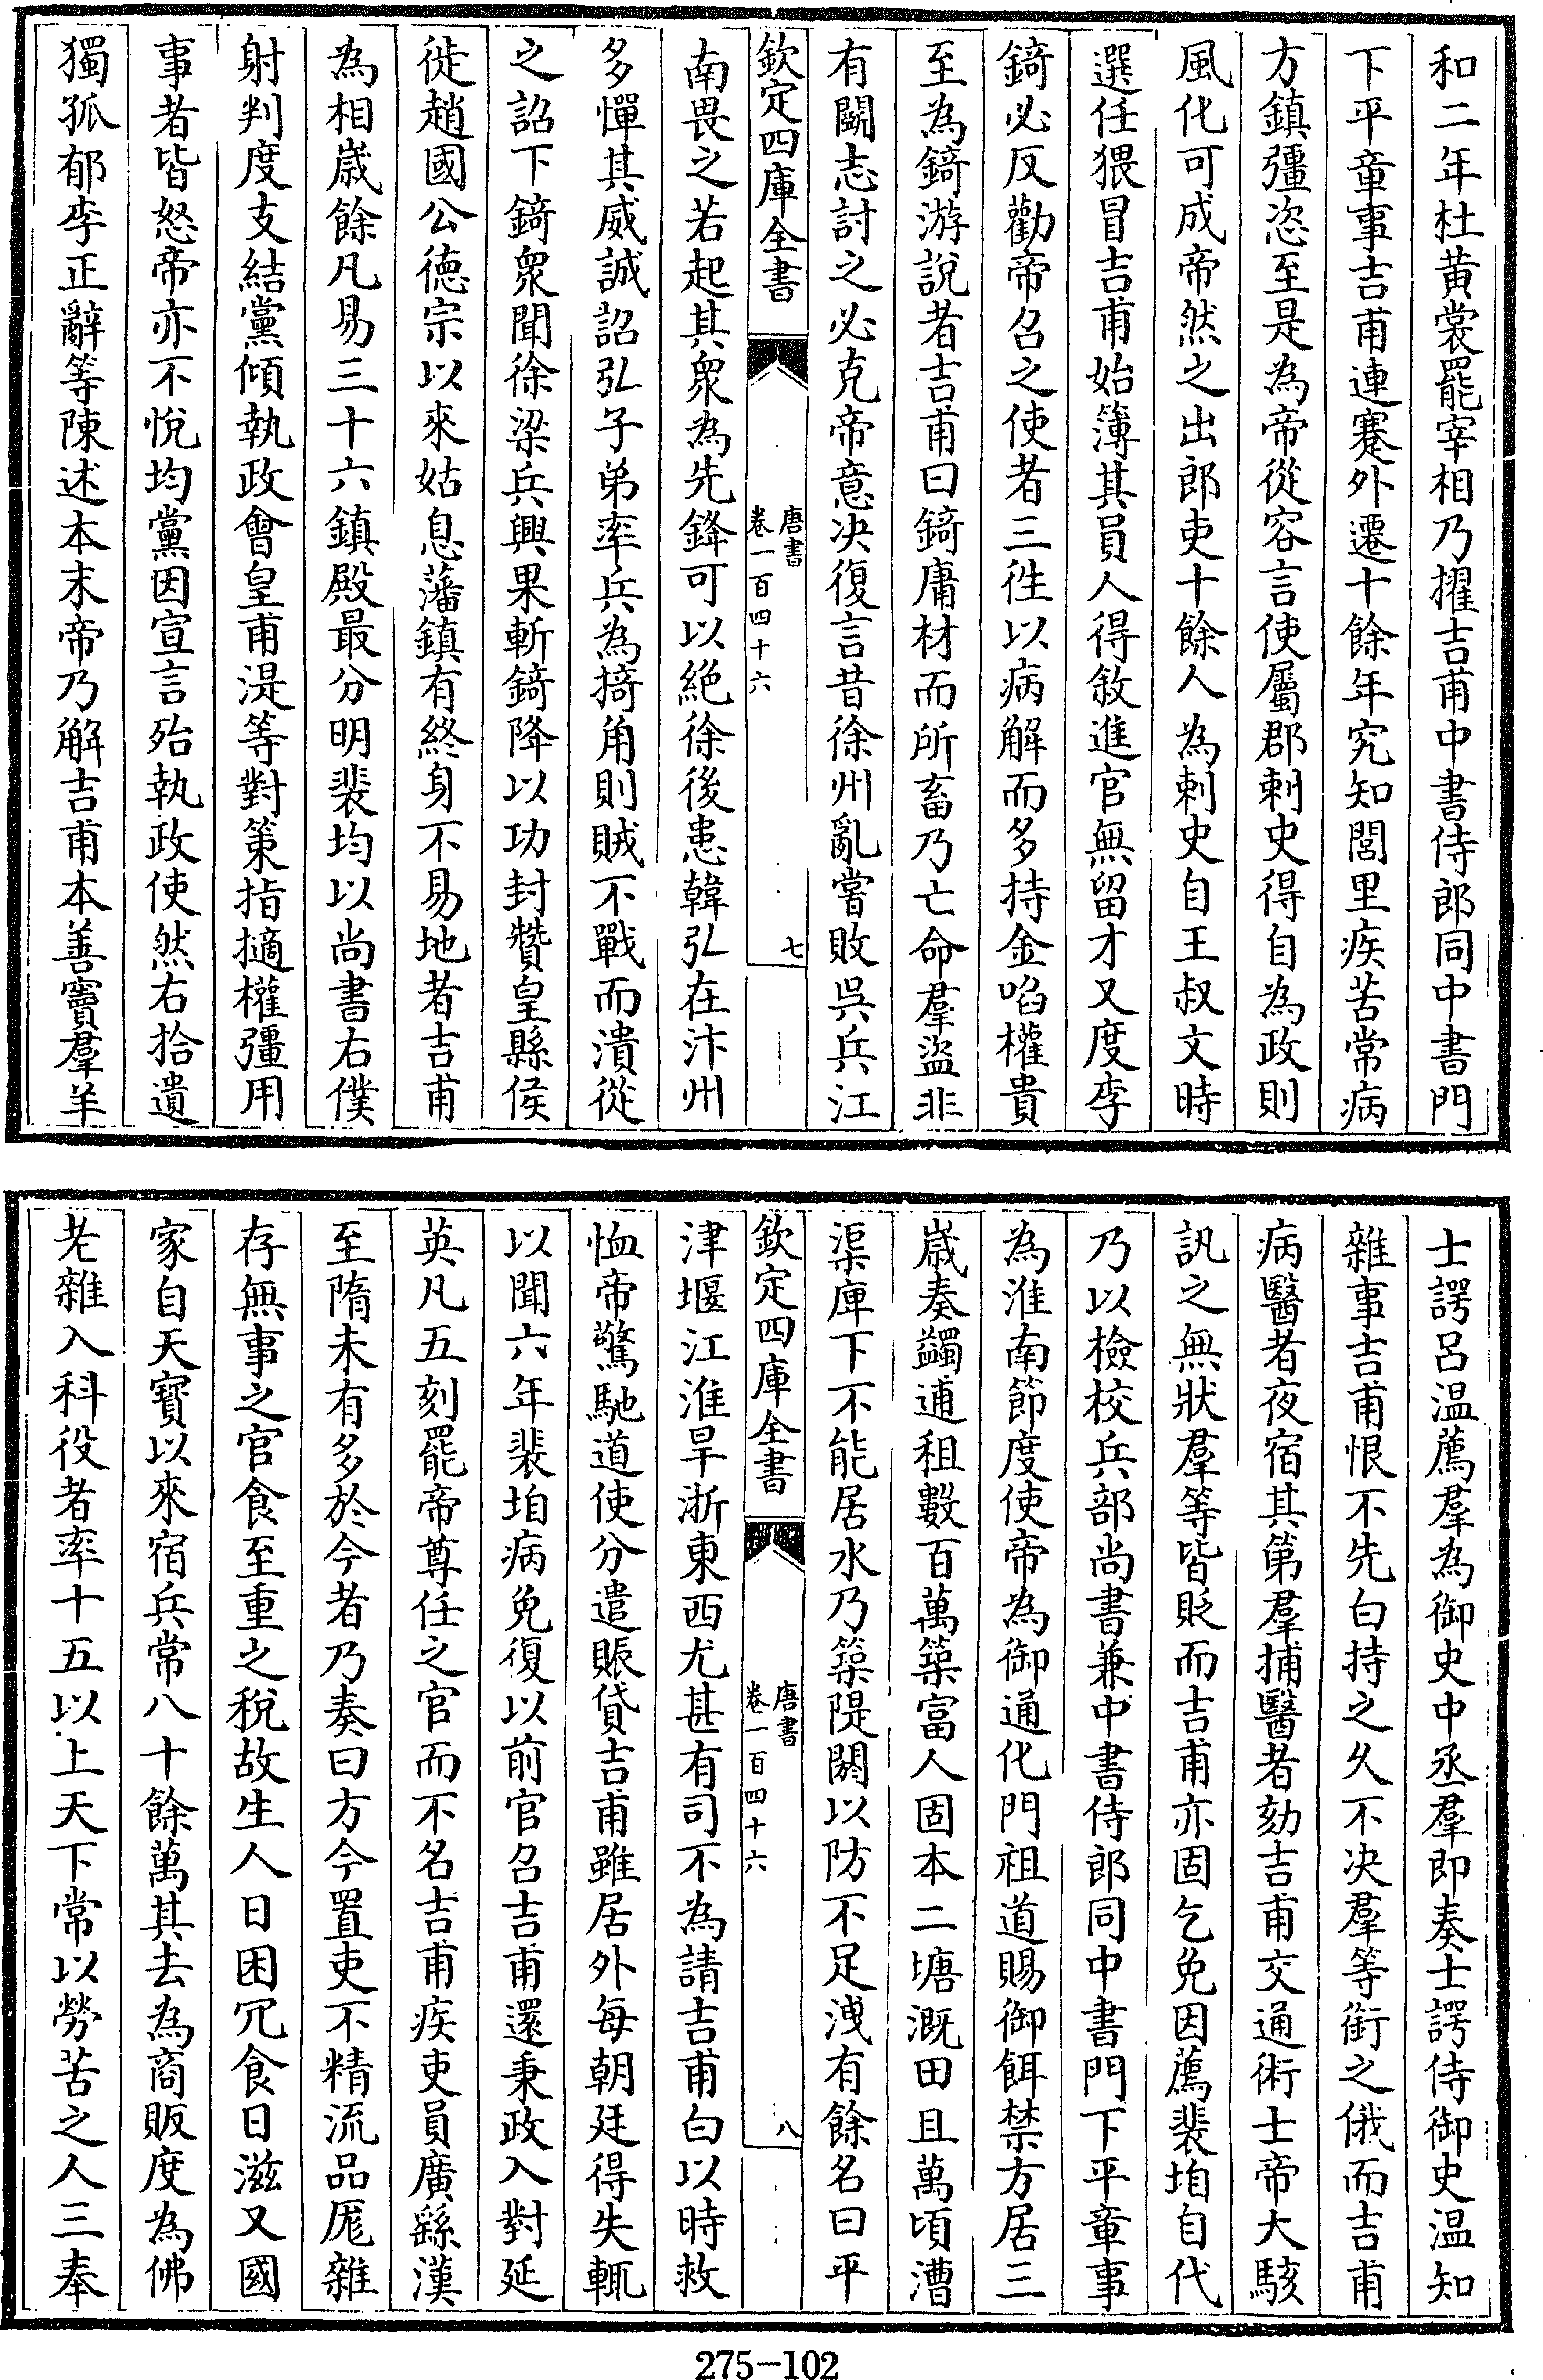 和二年杜黄裳罷宰相乃擢吉甫中書侍郎同中書門
下平章事吉甫連蹇外遷十餘年究知閭里疾苦常病
方鎮彊恣至是為帝從容言使屬郡刺史得自為政則
風化可成帝然之出郎吏十餘人為刺史自王叔文時
選任猥冒吉甫始簿其員人得敘進官無留才又度李
錡必反勸帝召之使者三徃以病解而多持金啗權貴
至為錡游說者吉甫曰錡庸材而所畜乃亡命羣盜非
有鬬志討之必克帝意决復言昔徐州亂嘗敗吳兵江
欽定四庫全書
唐書
卷一百四十六
七
南畏之若起其衆為先鋒可以絶徐後患韓弘在汴州
多憚其威誠詔弘子弟率兵為掎角則賊不戰而潰從
之詔下錡衆聞徐梁兵興果斬錡降以功封贊皇縣侯
徙趙國公德宗以來姑息藩鎮有終身不易地者吉甫
為相嵗餘凡易三十六鎮殿最分明裴均以尚書右僕
射判度支結黨傾執政會皇甫湜等對策指擿權彊用
事者皆怒帝亦不悅均黨因宣言殆執政使然右拾遺
獨孤郁李正辭等陳述本末帝乃解吉甫本善竇羣羊
士諤呂温薦羣為御史中丞羣即奏士諤侍御史温知
雜事吉甫恨不先白持之久不决羣等銜之俄而吉甫
病醫者夜宿其第羣捕醫者劾吉甫交通術士帝大駭
訊之無狀羣等皆貶而吉甫亦固乞免因薦裴垍自代
乃以檢校兵部尚書兼中書侍郎同中書門下平章事
為淮南節度使帝為御通化門祖道賜御餌禁方居三
嵗奏蠲逋租數百萬築富人固本二塘溉田且萬頃漕
渠庳下不能居水乃築隄閼以防不足洩有餘名曰平
欽定四庫全書
唐書
卷一百四十六
八
津堰江淮旱浙東西尤甚有司不為請吉甫白以時救
恤帝驚馳道使分遣賑貸吉甫雖居外每朝廷得失輒
以聞六年裴垍病免復以前官召吉甫還秉政入對延
英凡五刻罷帝尊任之官而不名吉甫疾吏員廣繇漢
至隋未有多於今者乃奏曰方今置吏不精流品厖雜
存無事之官食至重之稅故生人日困冗食日滋又國
家自天寳以來宿兵常八十餘萬其去為商販度為佛
老雜入科役者率十五以上天下常以勞苦之人三奉
275-102